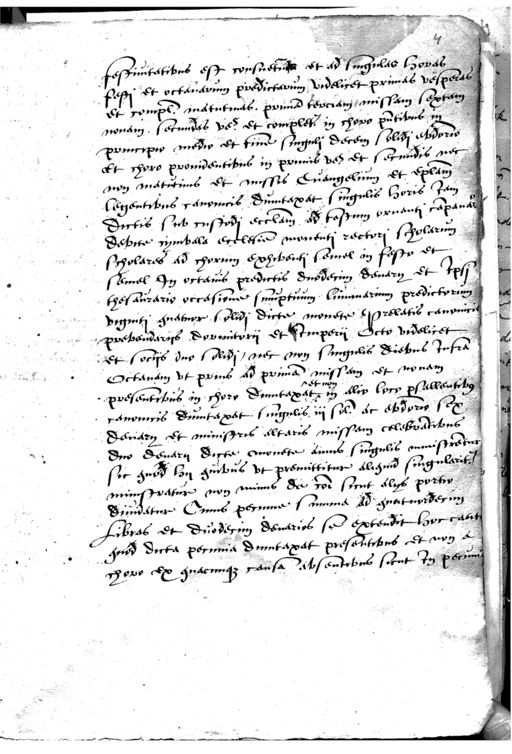 festiuitatibus est consuetum et ad singulas horas
festi et octauarum predictarum videlicet primas vesperas
et complet matutinas primam terciam missam sextam
nonam secundas vesp et complet in choro pntibus in
principio medio et fine singuli decem solidi ebdōrio
et choro prouidentibus in primis vesp et secundis nec
non matutinis et missis Euangelium et eplam
legentibus canonicis duntaxat singulis horis Item
dictis sub custodi ecclesie ad festum ornanti campanas
debite cymbala ecclesie mouenti rectori scholarum
scholares ad chorum exhibenti semel in festo et
semel In octauis predictis duodecim denarij et Ipsi
thesaurario occasione sumptuum luminarium predictorum
viginti quatuor solidi dicte monete prelatis canonicis
prebendarijs dormitorij et Imperij Octo videlicet
et socijs duo solidi nec non singulis diebus Infra
Octauam vt prius ad primam missam et nonam
presentibus in choro duntaxat et non in alio loco psallentibus
canonicis duntaxat singulis iij sol ac ebdōrio sex
denarij et ministris altaris missam celebrantibus
duo denarij dicte monete annis singulis ministrentur
sic quod hij quibus vt premittitur aliquid singulariter
ministratur non minus de coi sicut alijs portio
diuidatur Cuius pecunie summa ad quatuordecim
libras et duodecim denarios se extendit hoc cauto
quod dicta pecunia duntaxat presentibus et non a
choro ex quacunq causa absentibus sicut In pecunia